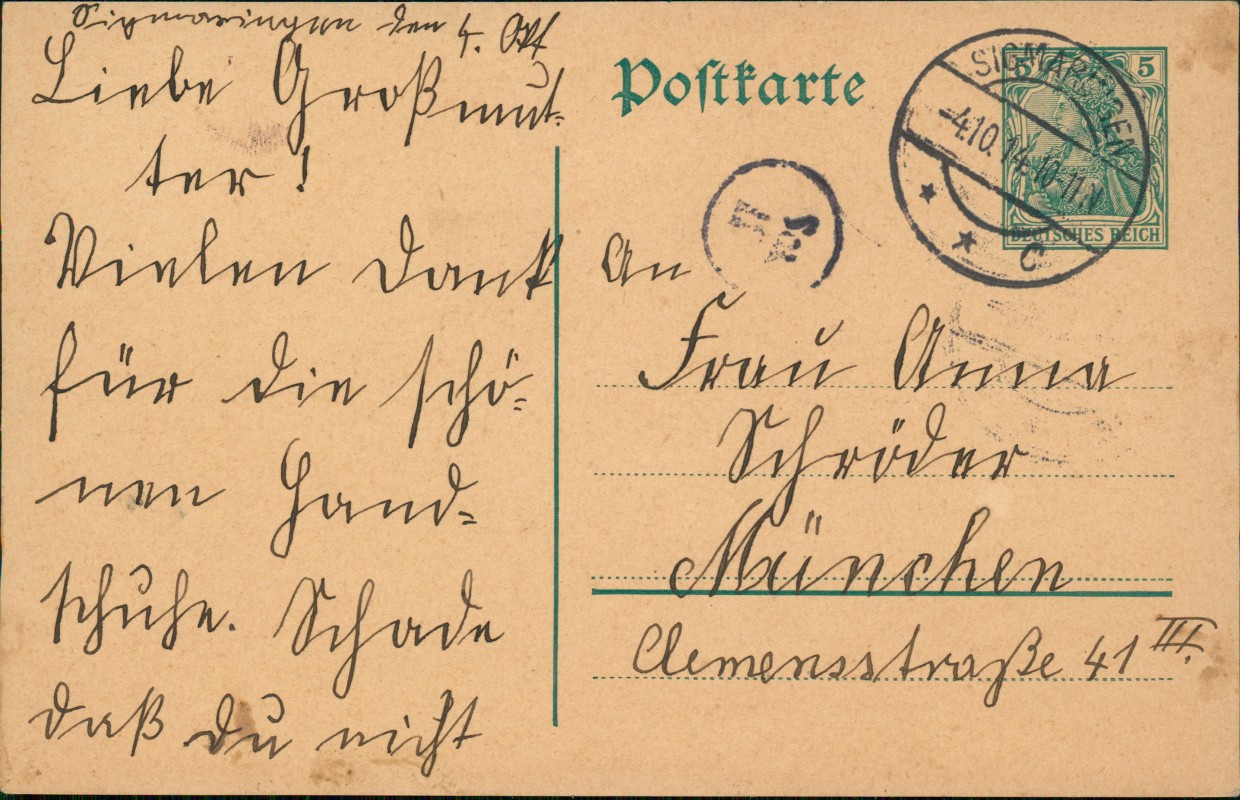 Sigmaringen den 4. Okt
Liebe Großmut-
ter!
Vielen Dank
für die schö-
nen Hand-
schuhe. Schade
daß du nicht
Postkarte
SIGMARINGEN
-4.10.14.10-11.V
* * C
5 5
DEUTSCHES REICH
An
Frau Anna
Schröder
München
Clemensstraße 41 III.